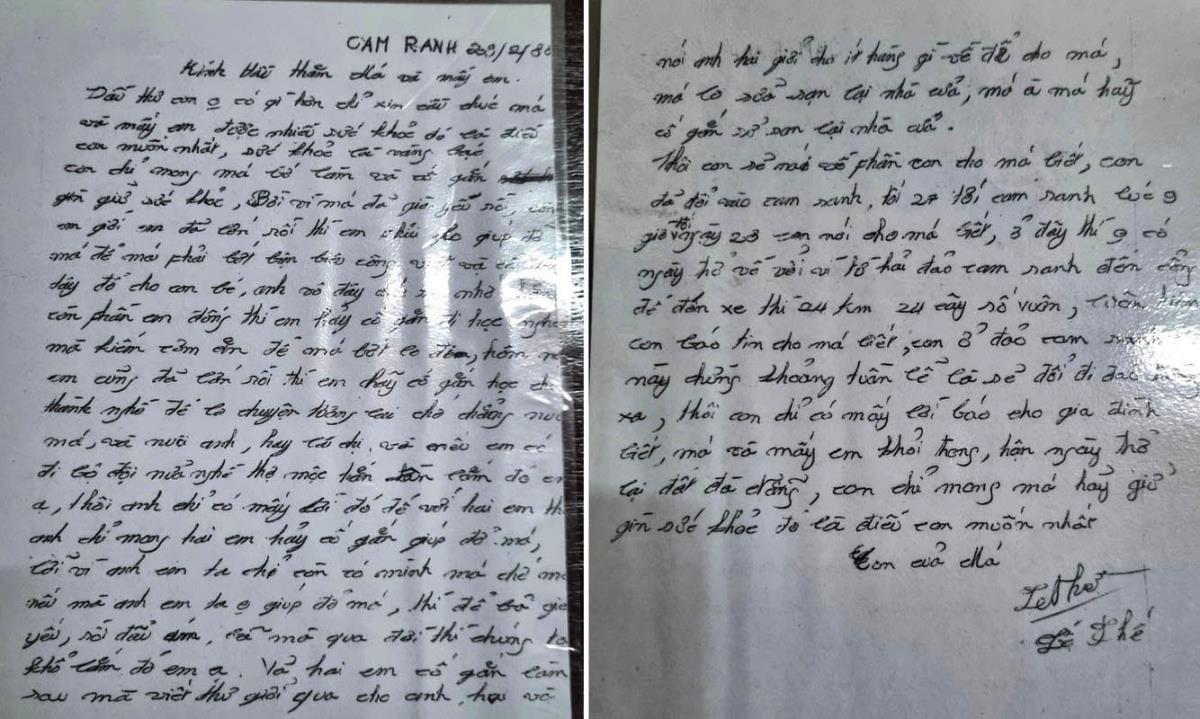 CAM RANH 203/2/88
Kính thư thăm Má và mấy em.
Đầu thư con o có gì hơn chỉ xin cầu chúc má
và mấy em được nhiều sức khoẻ đó là điều
con muốn nhất, sức khoẻ là vàng bạc
con chỉ mong má bớt làm và cố gắn
giử sức khoẻ, Bởi vì má đả già yếu rồi, còn
em giới em đả lớn rồi thì em phải lo giúp đở
má để má phải bớt bận biệu công việt và
dậy đổ cho con bé, anh vô đây nhờ
còn phần em đông thì em hảy cố gắn đi học nghề
mà kiếm cơm ăn để má bớt lo đêm, hôm nay
em củng đả lớn rồi thì em hãy cố gắn học cho
thành nghề để lo chuyện tương lai chớ chẳng
má, và nuôi anh, hay là chị, và nếu em có
đi bộ đội nửa nghề thợ mộc lắm đó em
ạ, thôi anh chỉ có mấy lời đó đế với hai em thì
anh chỉ mong hai em hảy cố gắn giúp đở má,
bởi vì anh con ta chỉ còn có mình má chớ mà
nếu mà anh em ta o giúp đở má, thì để bả già
yếu, rồi đấu ốm, mà qua đời thì chúng ta
khổ lắm đó em ạ. Vả hai em cố gắn làm
sau mà viết thư giởi qua cho anh, và
nói anh hai giởi cho ít hàng gì về để cho má,
má lo sửa sạn lại nhà cửa, má à má hảy
cố gắn sử san lại nhà cửa.
Thôi con sẻ nói về phần con cho má biết, con
đả đổi vào cam ranh, tối 27 tới cam ranh lúc 9
giờ tối ngày 28 con nói cho má biết, ở đây thì o có
ngày trở về vởi vì từ hải đảo cam ranh đến cổng
để đón xe thì 24 km 24 cây số vuôn,
con báo tin cho má biết, con ở đảo cam ranh
này chừng khoảng tuần lể là sẻ đổi đi đảo
xa, thôi con chỉ có mấy lời báo cho gia đình
biết, má và mấy em khỏi trong, hận ngày trở
lại đất đà đẳng, con chỉ mong má hảy giử
gìn sức khoẻ đó là điều con muốn nhất
Con củả Má
Lê Thế
Lê Thế